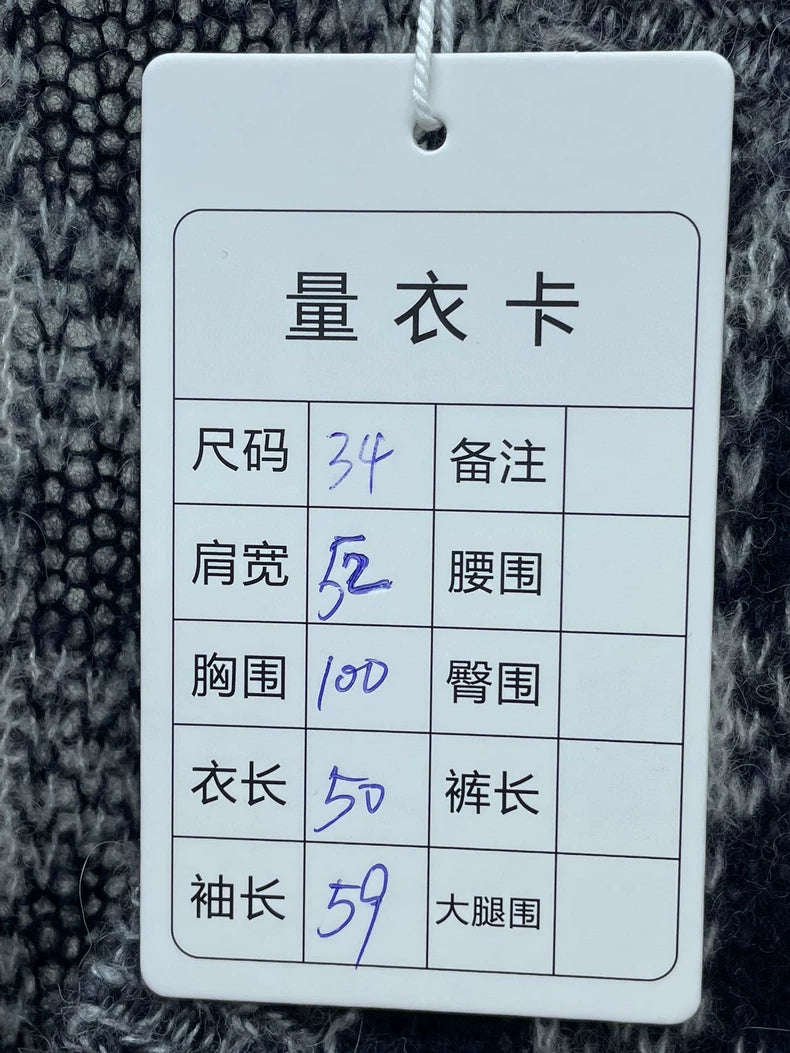 量衣卡
尺码 34 备注
肩宽 52 腰围
胸围 100 臀围
衣长 50 裤长
袖长 59 大腿围